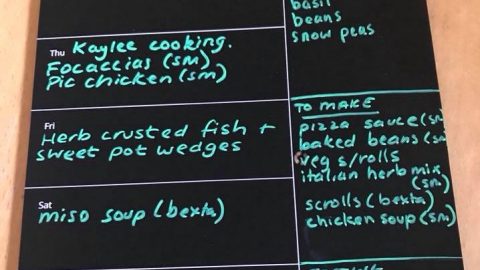 basil
beans
snow peas
Thu Kaylee cooking.
Focaccias (SM)
Pic chicken (SM)
Fri
Herb crusted fish +
sweet pot wedges
Sat
miso soup (bexta)
TO MAKE
pizza sauce (SM
baked beans (SM
veg s/rolls
italian herb mix
(SM)
scrolls (bexta)
chicken soup (SM)